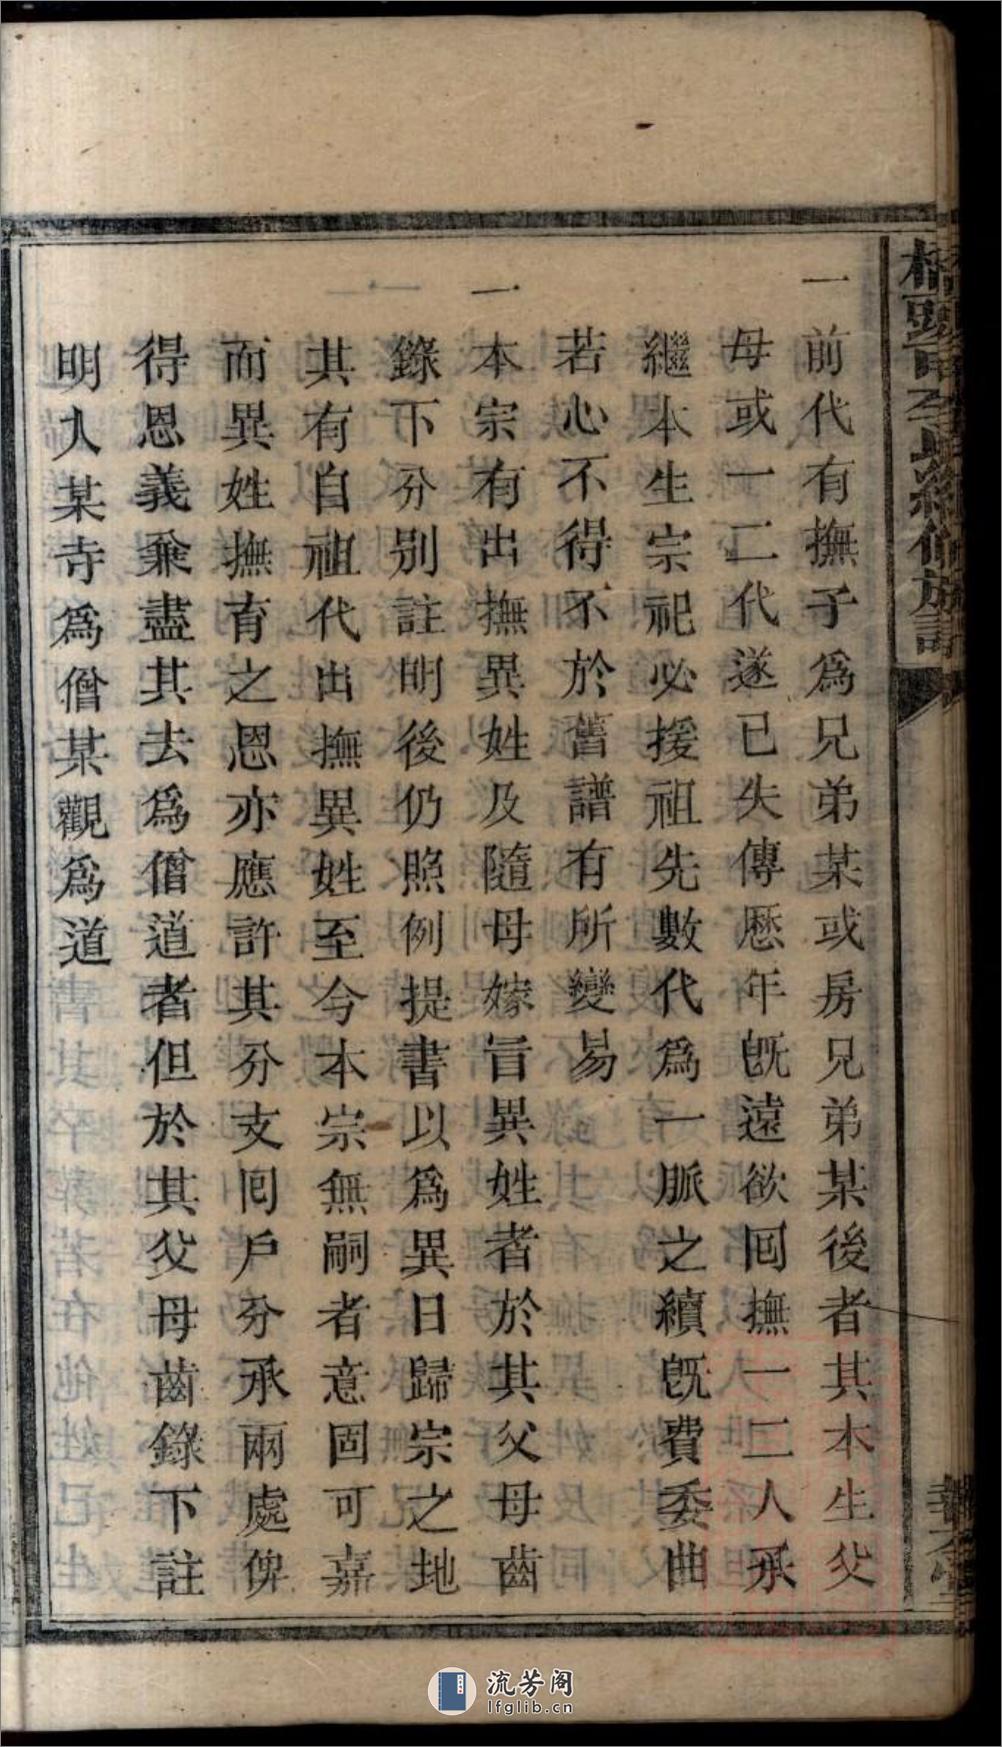 一前代有撫子爲兄弟某或房兄弟某後者其本生父
母或一二代遂已失傳歷年旣遠欲囘撫一二人承
繼本生宗祀必援祖先數代爲一脈之續旣費委曲
若心不得不於舊譜有所變易
一本宗有出撫異姓及隨母嫁冒異姓者於其父母齒
錄下分別註明後仍照例提書以爲異日歸宗之地
其有自祖代出撫異姓至今本宗無嗣者意固可嘉
而異姓撫育之恩亦應許其分支囘戶分承兩處俾
得恩義兼盡其去爲僧道者但於其父母齒錄下註
明入某寺爲僧某觀爲道
流芳阁
lfglib.cn